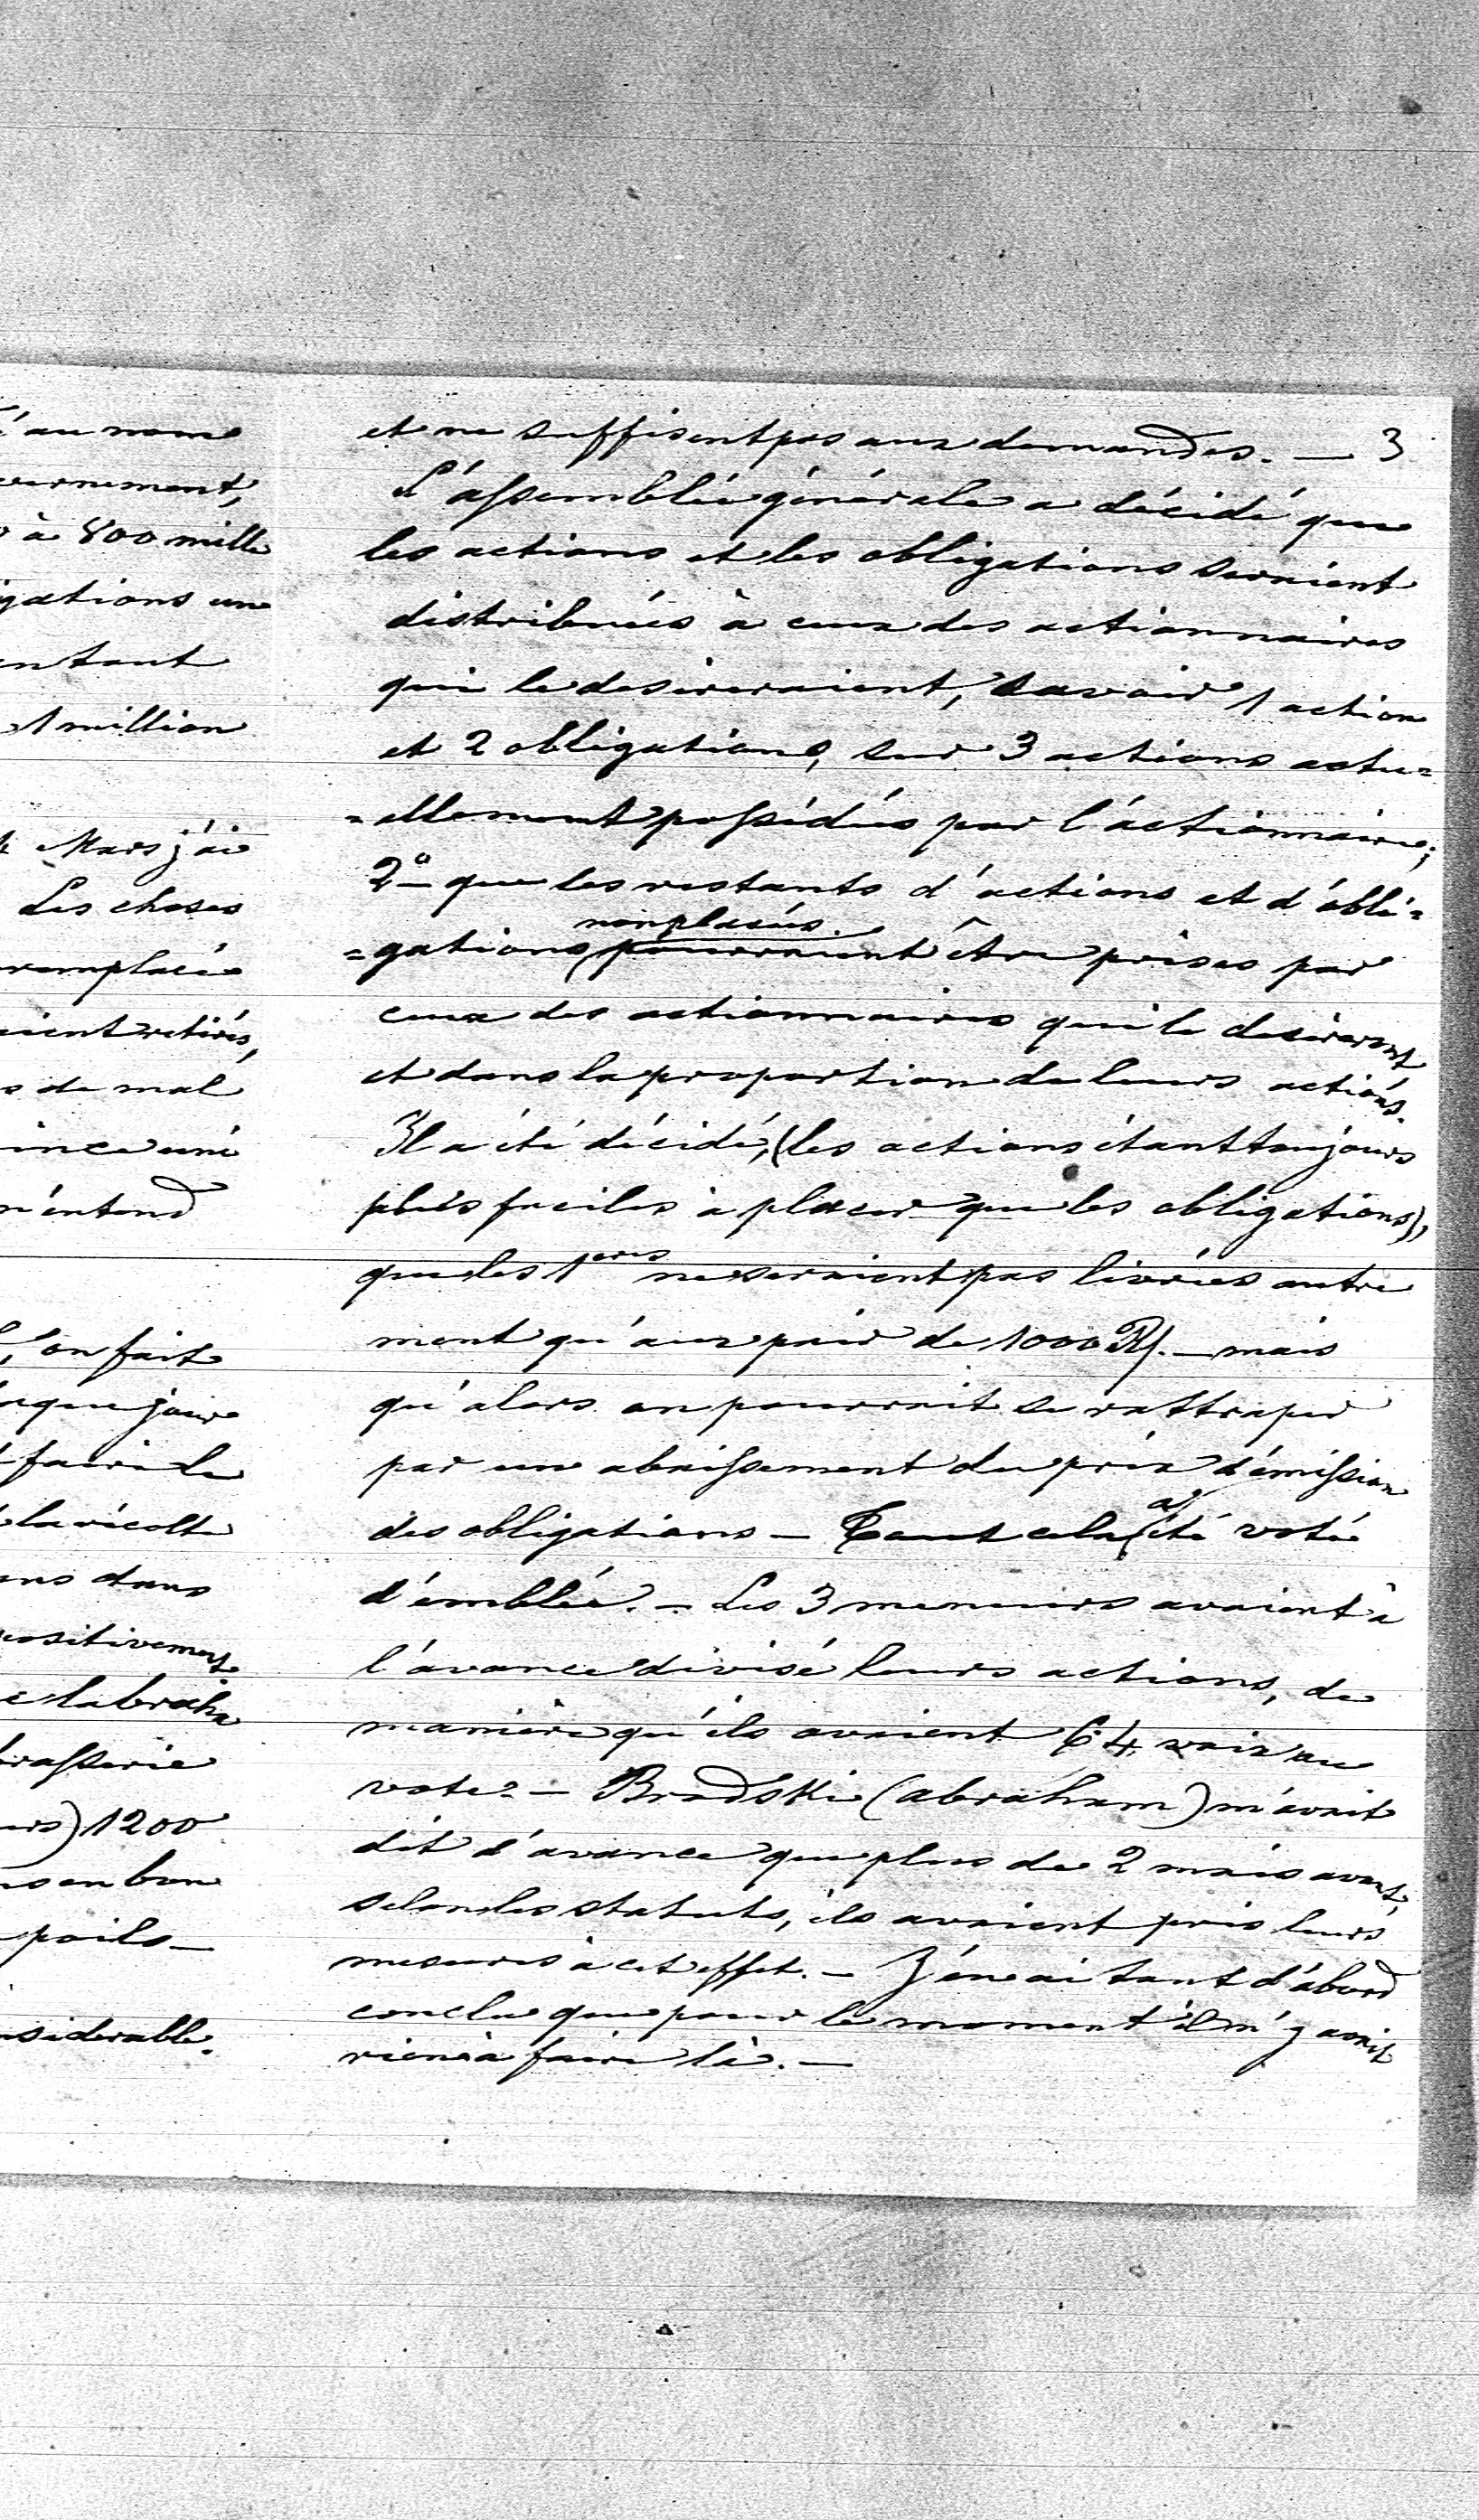 é au nom
vernement,
à 800 mille
gations une
entout
1 million
Mars j'ai
Les choses
remplacé
aient retirés,
s de mal
ince uni
n'entend
l'on fait
aque jour
faire le
la récolte
ans dans
positivement
e labraha
brasserie
urs) 1200
ns en bon
poils —
nsiderable.
et ne suffisent pas aux demandes. — 3
L'assemblée générale a décidé que
les actions et les obligations seraient
distribuées à ceux des actionnaires
qui le desireraient, savoir 1 action
et 2 obligations, sur 3 actions actu=
=ellement possédées par l'actionnaire;
2° que les restants d'actions et d'obli=
non placées
=gations pourraient être prises par
ceux des actionnaires qui le desireront
et dans la proportion de leurs actions.
Il a été décidé, (les actions étant toujours
plus faciles à placer que les obligations),
que les 1eres ne seraient pas livrées autre
ment qu'aux pair de 1000 R. — mais
qu'alors on pourrait se rattraper
par un abaissement du prix d'émission
des obligations — Tout cela a été voté
d'emblée. — Les 3 meneurs avaient à
l'avance divisé leurs actions, de
manière qu'ils avaient 64 voix au
vote. — Brodski (abraham) m'avait
dit d'avance que plus de 2 mois avant,
selon les statuts, ils avaient pris leurs
mesures à cet effet. — J'en ai tout d'abord
conclu que pour le moment il n'y avait
rien à faire là. —